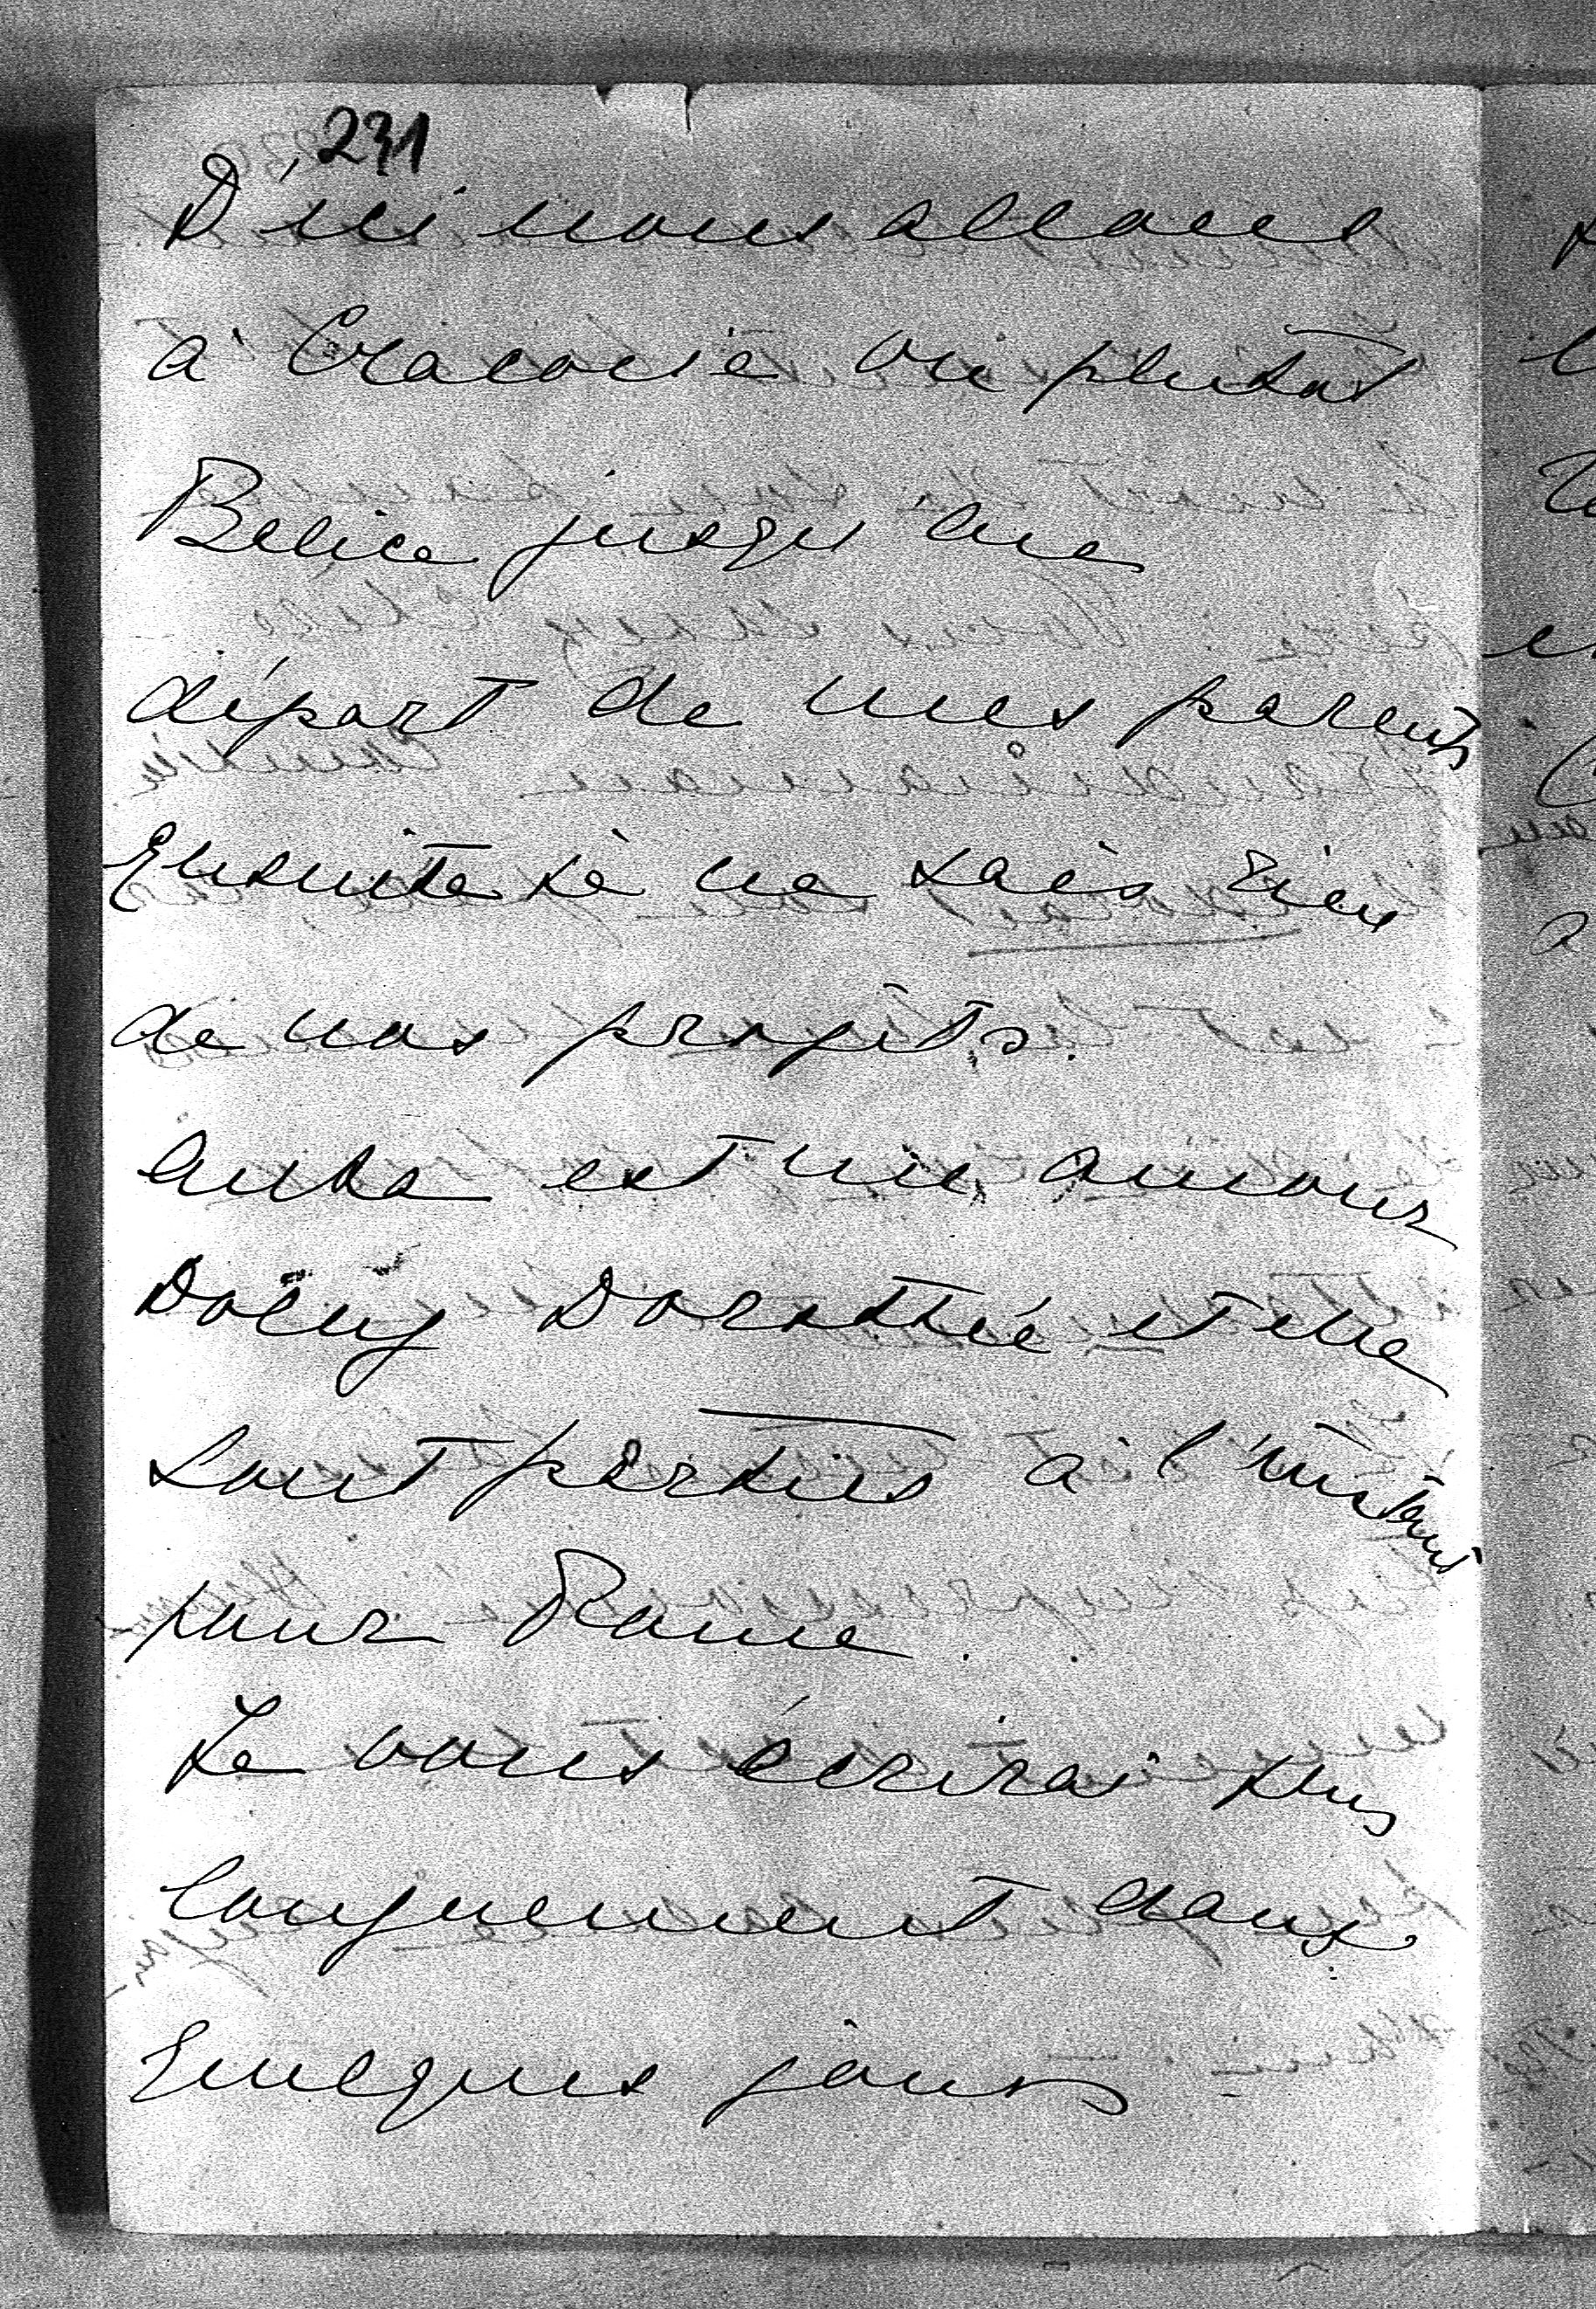 231
D'ici nous allons
à Cracovie ou plutôt
Belice jusqu'au
départ de mes parents
Ensuite je ne sais rien
de nos projets.
est un amour
Dolly Dorothée et elle
sont parties à l'instant
pour Rome.
Je vous écrirai plus
longuement dans
quelques jours